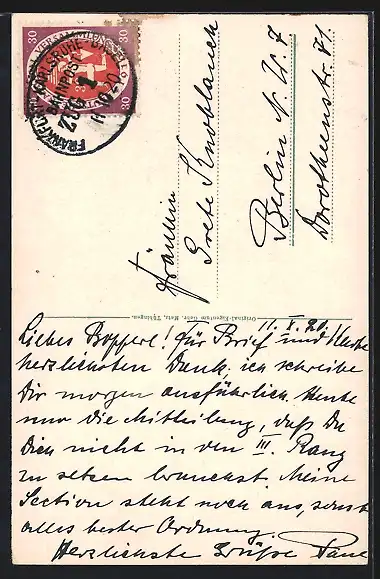 30 30
30
FRANKFURT - KARLSRUHE
BAHNPOST
Fräulein
Grete Knoblauch
Berlin N.W. 7
Dorotheenstr. 81
Original-Eigentum Gebr. Metz, Tübingen.
11. X. 20.
Liebes Popperl! Für Brief und Karte
herzlichsten Dank. ich schreibe
Dir morgen ausführlich. Heute
nur die Mittheilung, daß Du
Dich nicht in den III. Rang
zu setzen brauchst. Meine
Section steht noch aus, sonst
alles bester Ordnung.
Herzlichste Grüße